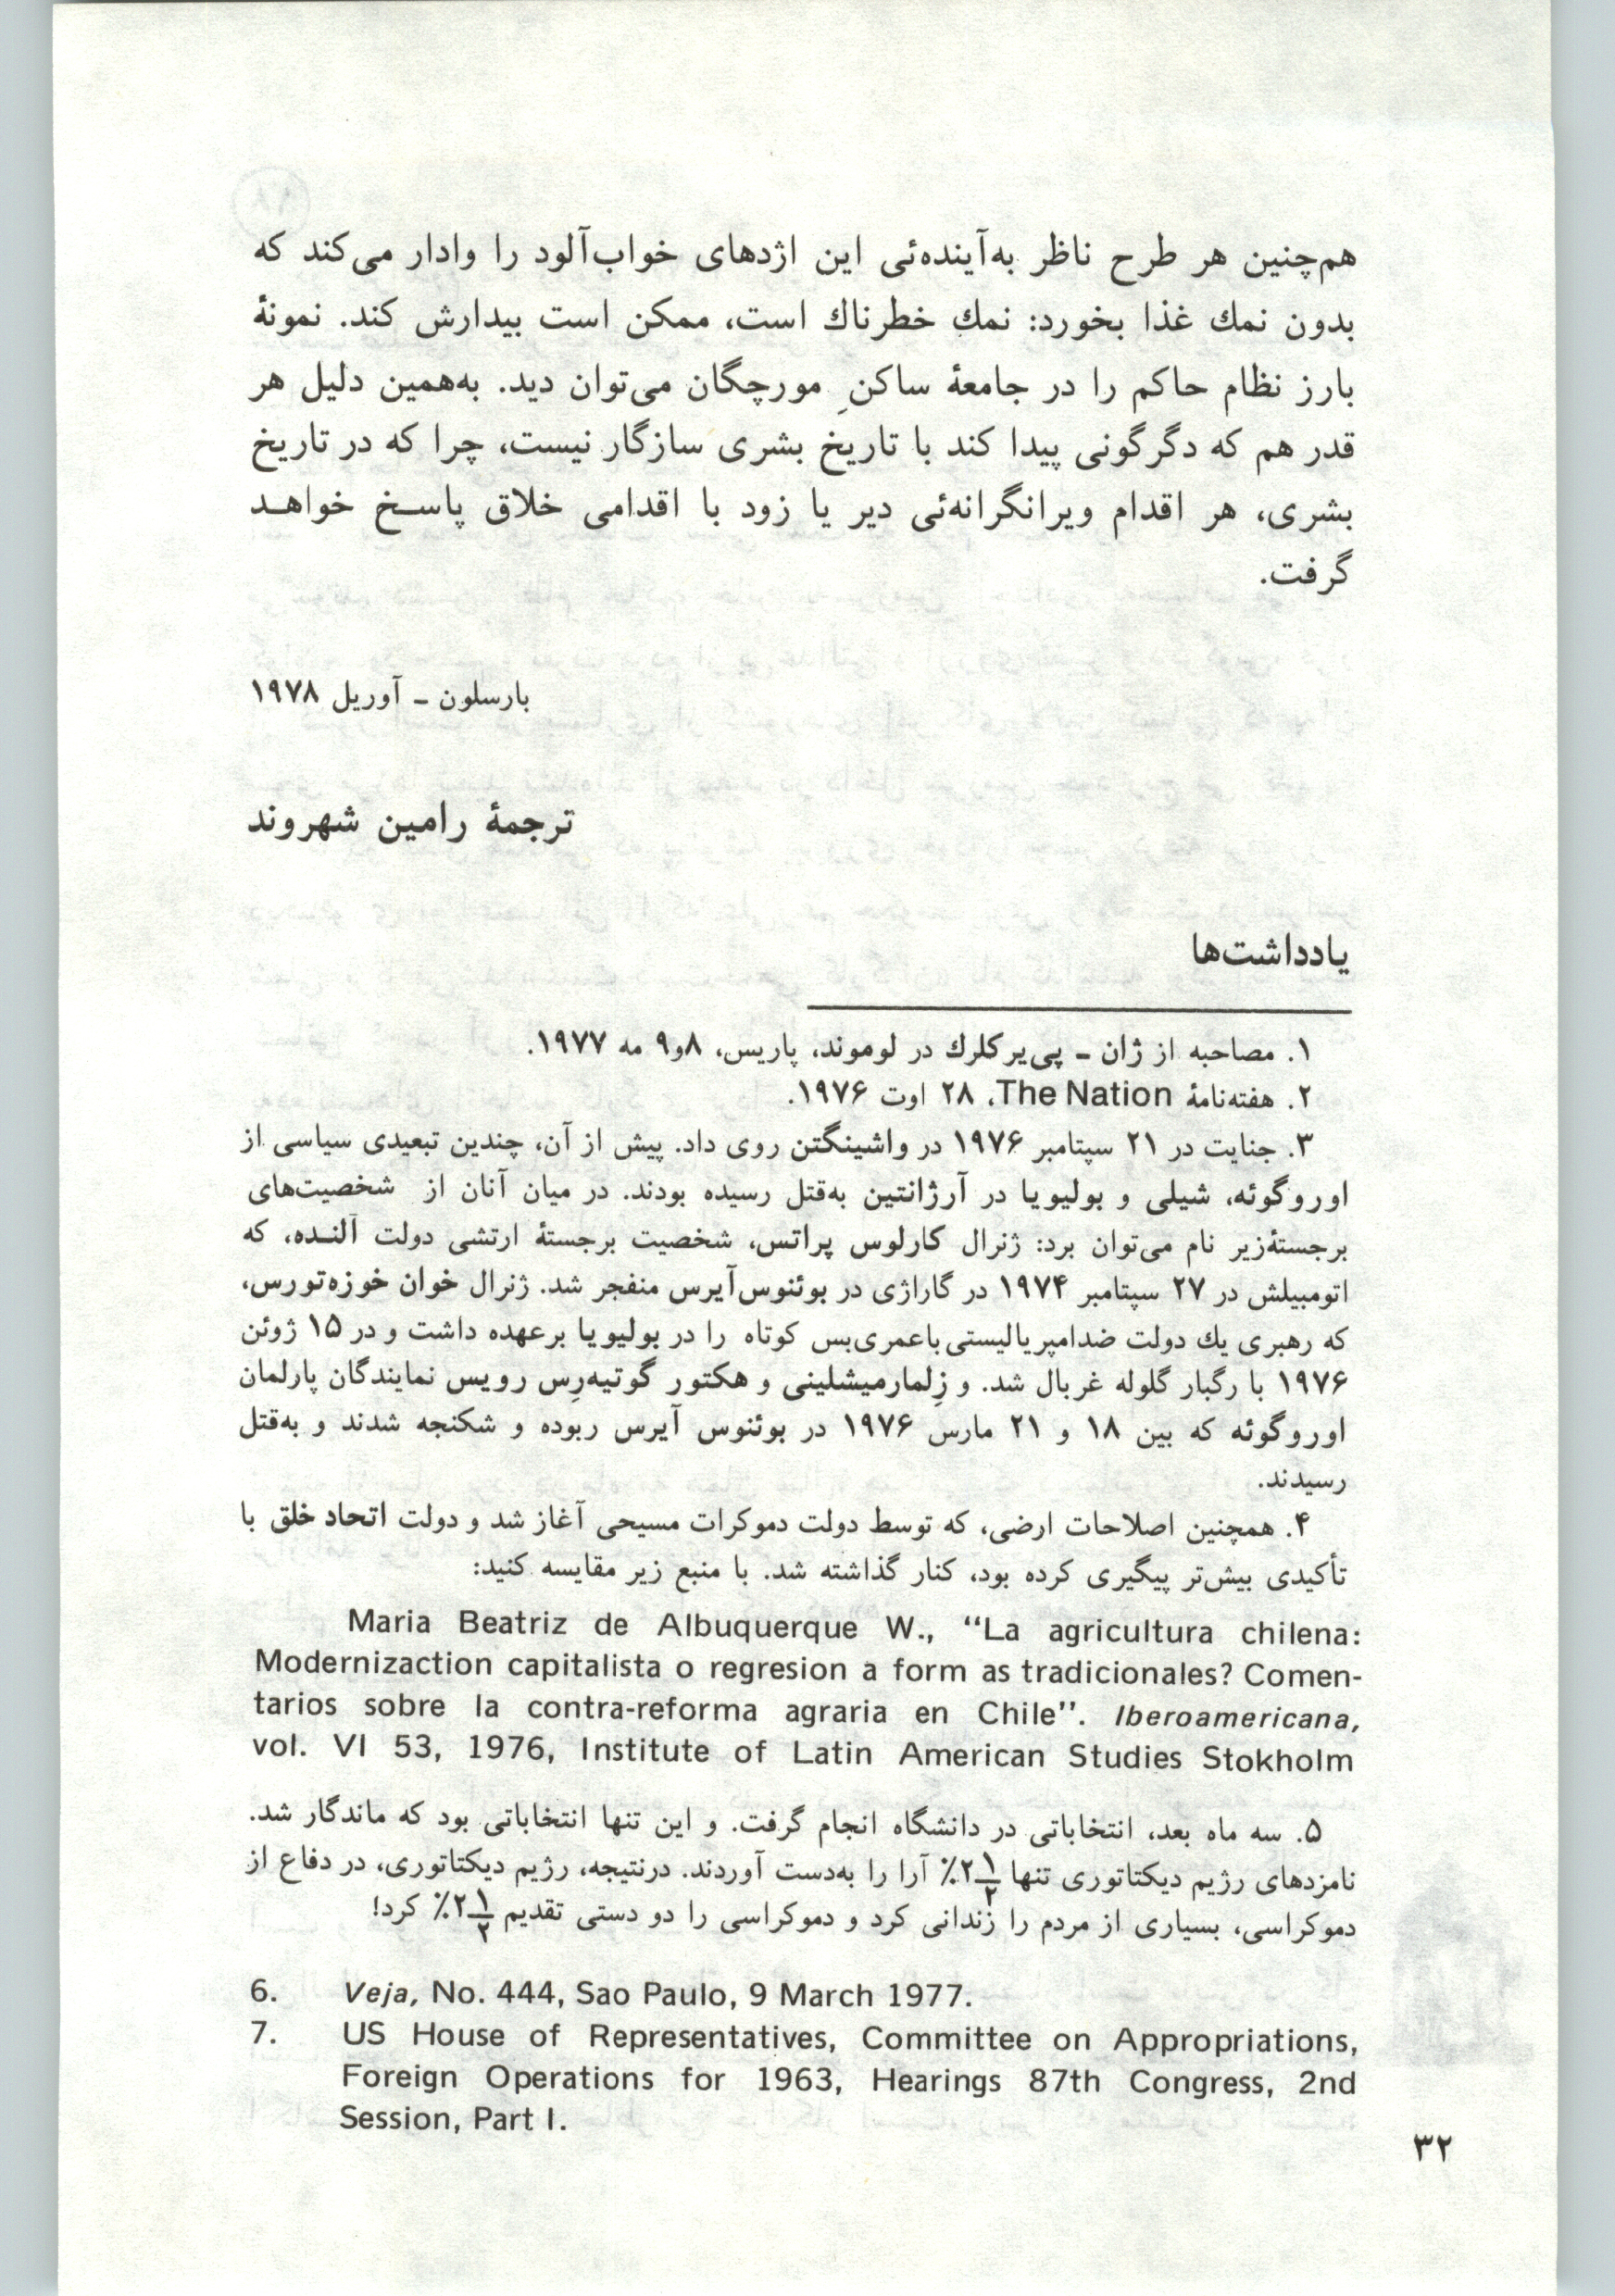 هم‌چنین هر طرح ناظر به‌آینده‌ئی این اژدهای خواب‌آلود را وادار می‌کند که
بدون نمك غذا بخورد: نمك خطرناك است، ممکن است بیدارش کند. نمونهٔ
بارز نظام حاکم را در جامعهٔ ساکنِ مورچگان می‌توان دید. به‌همین دلیل هر
قدر هم که دگرگونی پیدا کند با تاریخ بشری سازگار نیست، چرا که در تاریخ
بشری، هر اقدام ویرانگرانه‌ئی دیر یا زود با اقدامی خلاق پاسخ خواهد
گرفت.
بارسلون ـ آوریل ۱۹۷۸
ترجمهٔ رامین شهروند
یادداشت‌ها
۱. مصاحبه از ژان ـ پی‌یرکلرك در لوموند، پاریس، ۸و۹ مه ۱۹۷۷.
۲. هفته‌نامهٔ The Nation، ۲۸ اوت ۱۹۷۶.
۳. جنایت در ۲۱ سپتامبر ۱۹۷۶ در واشینگتن روی داد. پیش از آن، چندین تبعیدی سیاسی از
اوروگوئه، شیلی و بولیویا در آرژانتین به‌قتل رسیده بودند. در میان آنان از شخصیت‌های
برجستهٔ‌زیر نام می‌توان برد: ژنرال کارلوس پراتس، شخصیت برجستهٔ ارتشی دولت آلنده، که
اتومبیلش در ۲۷ سپتامبر ۱۹۷۴ در گاراژی در بوئنوس‌آیرس منفجر شد. ژنرال خوان خوزه‌تورس،
که رهبری یك دولت ضدامپریالیستی‌باعمری‌بس کوتاه را در بولیویا برعهده داشت و در ۱۵ ژوئن
۱۹۷۶ با رگبار گلوله غربال شد. و زِلمارمیشلینی و هکتور گوتیه‌رِس رویس نمایندگان پارلمان
اوروگوئه که بین ۱۸ و ۲۱ مارس ۱۹۷۶ در بوئنوس آیرس ربوده و شکنجه شدند و به‌قتل
رسیدند.
۴. همچنین اصلاحات ارضی، که توسط دولت دموکرات مسیحی آغاز شد و دولت اتحاد خلق با
تأکیدی بیش‌تر پیگیری کرده بود، کنار گذاشته شد. با منبع زیر مقایسه کنید:
Maria Beatriz de Albuquerque W., “La agricultura chilena:
Modernizaction capitalista o regresion a form as tradicionales? Comen-
tarios sobre la contra-reforma agraria en Chile”. Iberoamericana,
vol. VI 53, 1976, Institute of Latin American Studies Stokholm
۵. سه ماه بعد، انتخاباتی در دانشگاه انجام گرفت. و این تنها انتخاباتی بود که ماندگار شد.
نامزدهای رژیم دیکتاتوری تنها ۲۱/۲٪ آرا را به‌دست آوردند. درنتیجه، رژیم دیکتاتوری، در دفاع از
دموکراسی، بسیاری از مردم را زندانی کرد و دموکراسی را دو دستی تقدیم ۲۱/۲٪ کرد!
6. Veja, No. 444, Sao Paulo, 9 March 1977.
7. US House of Representatives, Committee on Appropriations,
Foreign Operations for 1963, Hearings 87th Congress, 2nd
Session, Part I.
۳۲